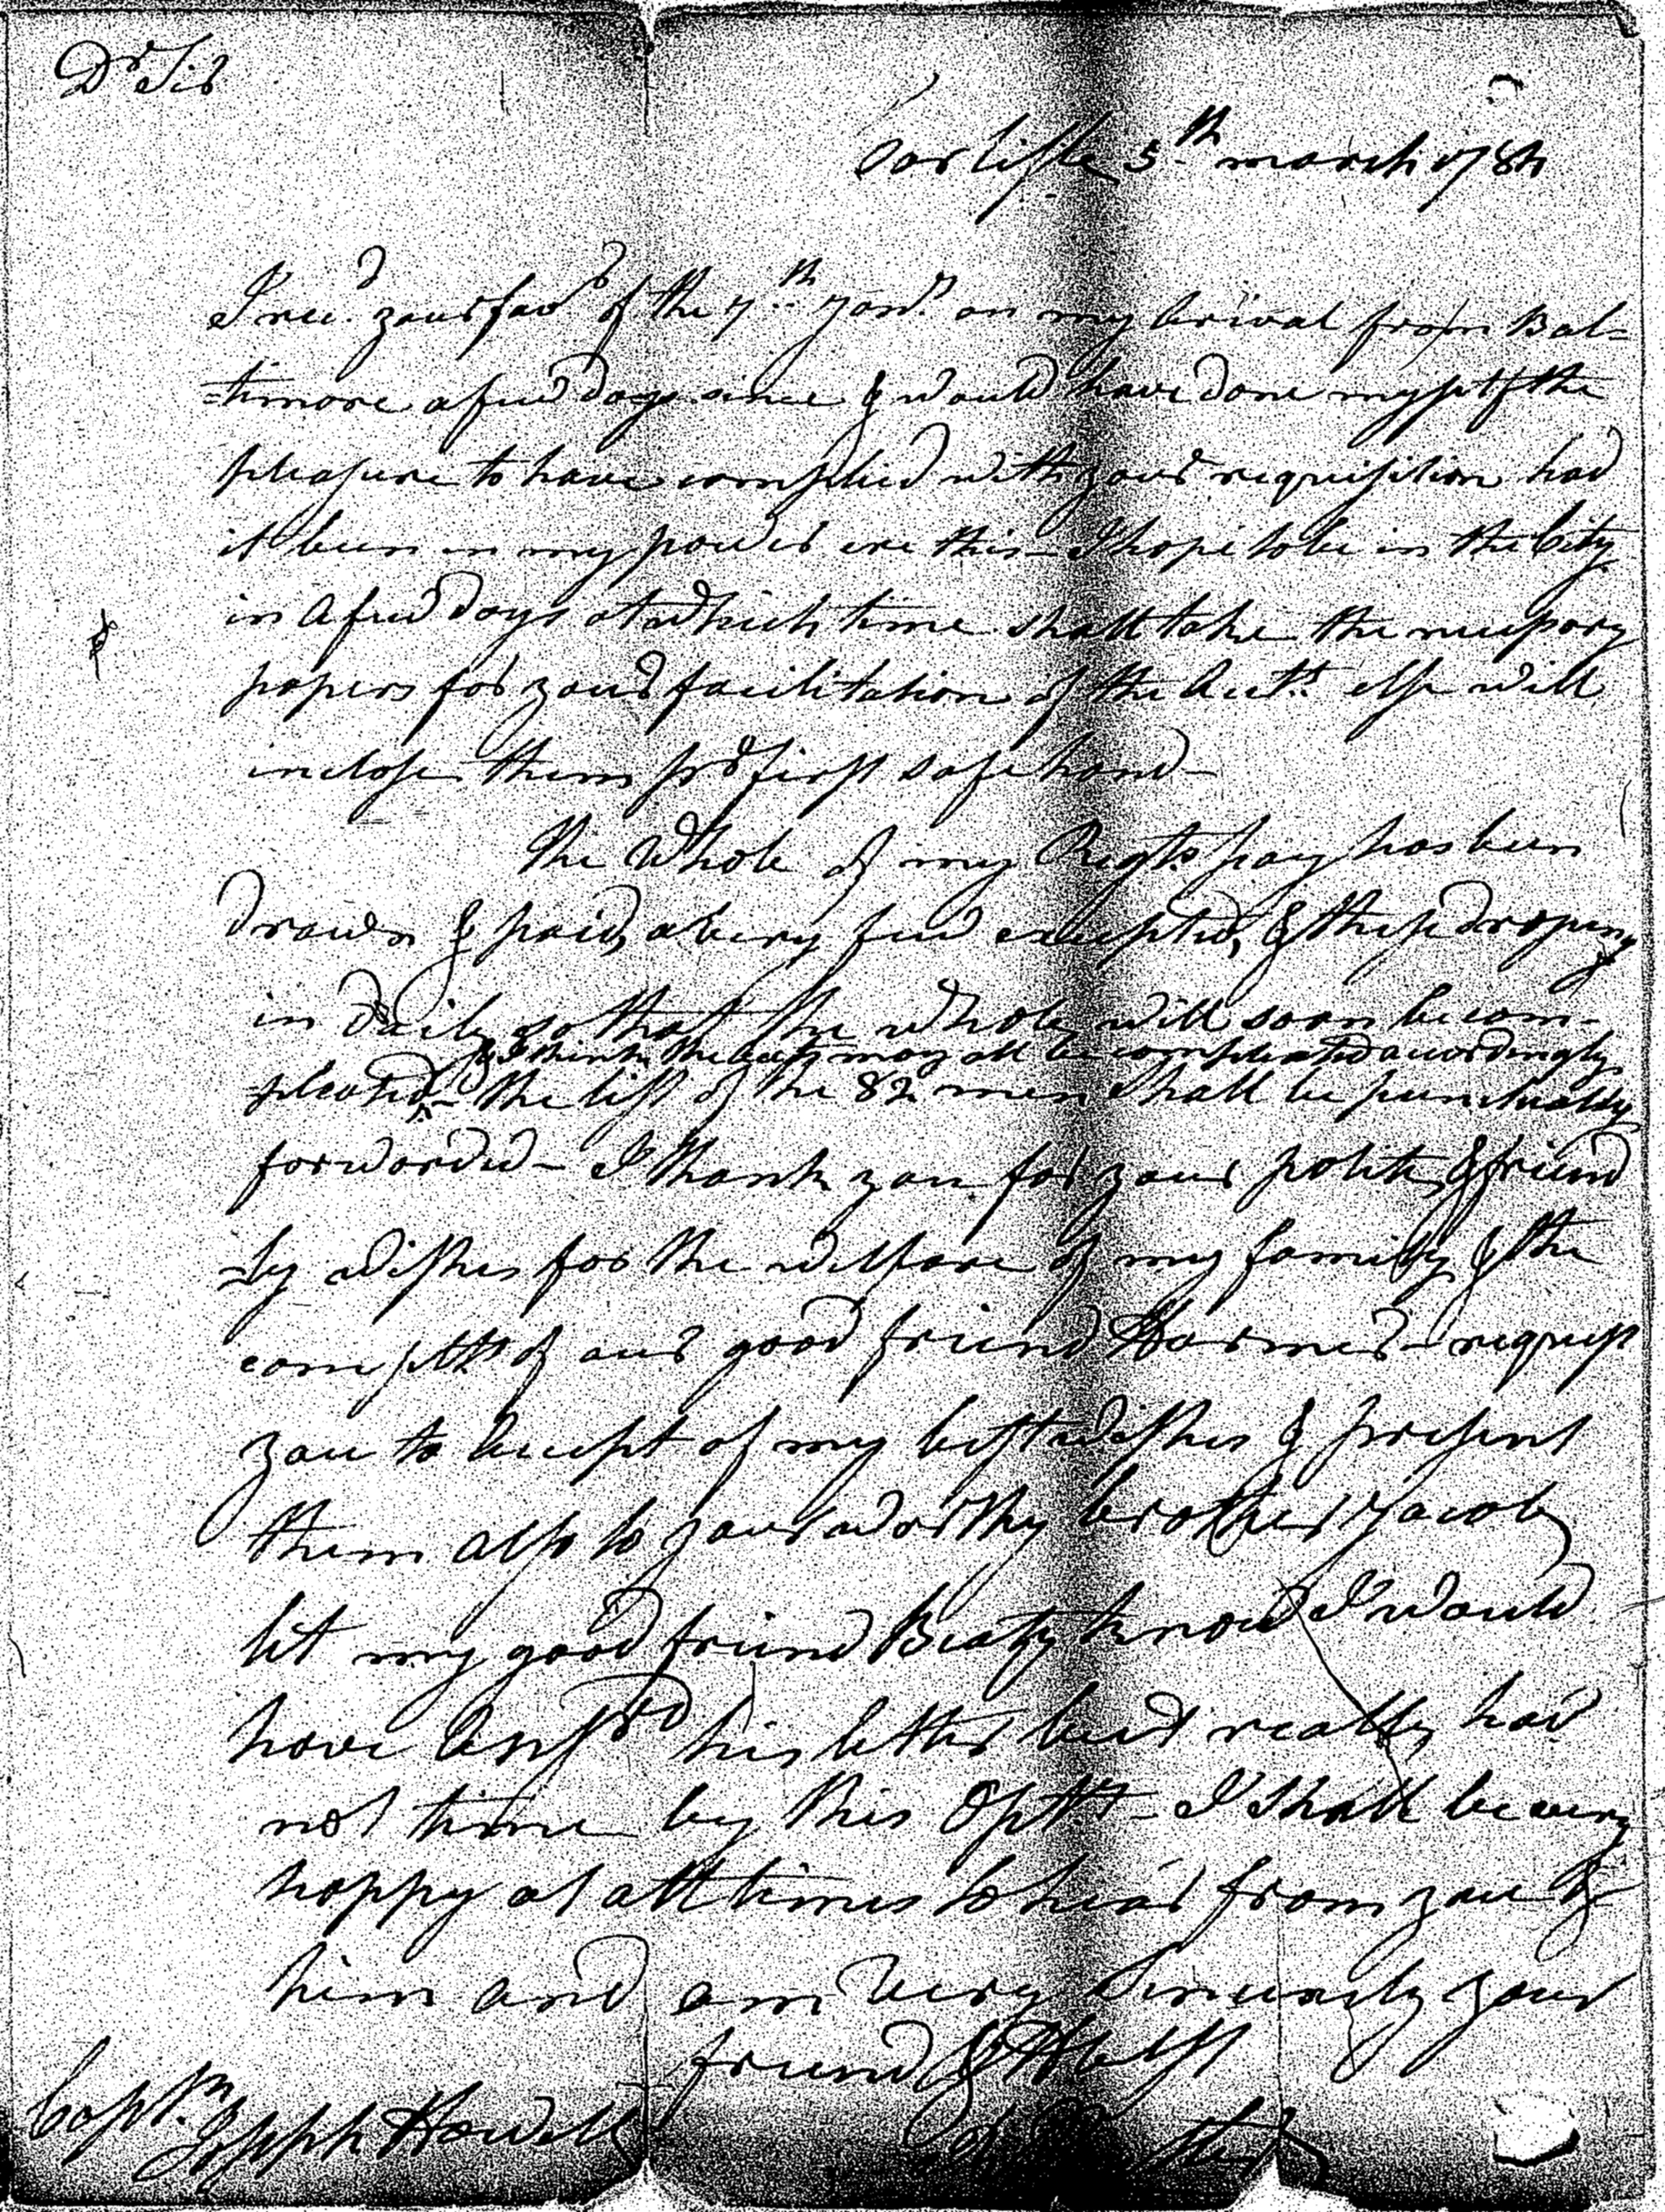 Dr Sir
Carlisle 5th march 1784
I recd. your favr of the 7th Jany. on my Arival from Bal=
=timore a few days since & would have done myself the
pleasure to have complied with your requisition had
it been in my power ere this – I hope to be in the City
in a few days at which time shall take the necessary
papers for your facilitation of the Accts. else will
inclose them pr first safe hand –
The Whole of my Regts. pay has been
drawn & paid, a very few excepted, & these droping
in daily so that the whole will soon be com-
& I think the accts may all be compleated accordingly
=pleated – the list of the 82 men shall be punctually
forwarded – I thank you for your polite & friend
=ly wishes for the welfare of my family & the
complts of our good friend Harmer – request
you to Accept of my best wishes & present
them also to your worthy brother Jacob
let my good friend Beaty know I would
have Answrd his letter but really had
not time by this Opty – I shall be very
happy at all times to hear from you &
him and am Very Sincerely your
friend & Hble St
Capt. Joseph Howell